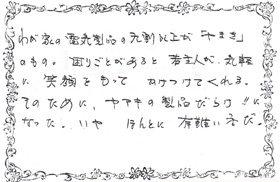 わが家の電気製品の九割以上が やまき
のもの。困りごとがあると 若主人が、気軽
に 笑顔をもって かけつけてくれる。
そのために、ヤマキの製品だらけ〃に
なった。いや ほんとに 有難いネだ。